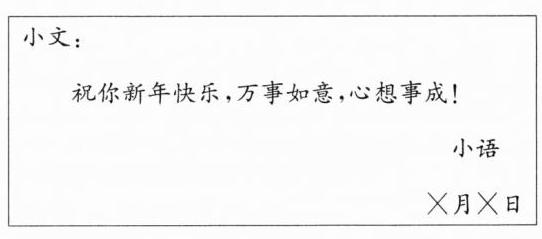 小文：
祝你新年快乐，万事如意，心想事成！
小语
╳月╳日